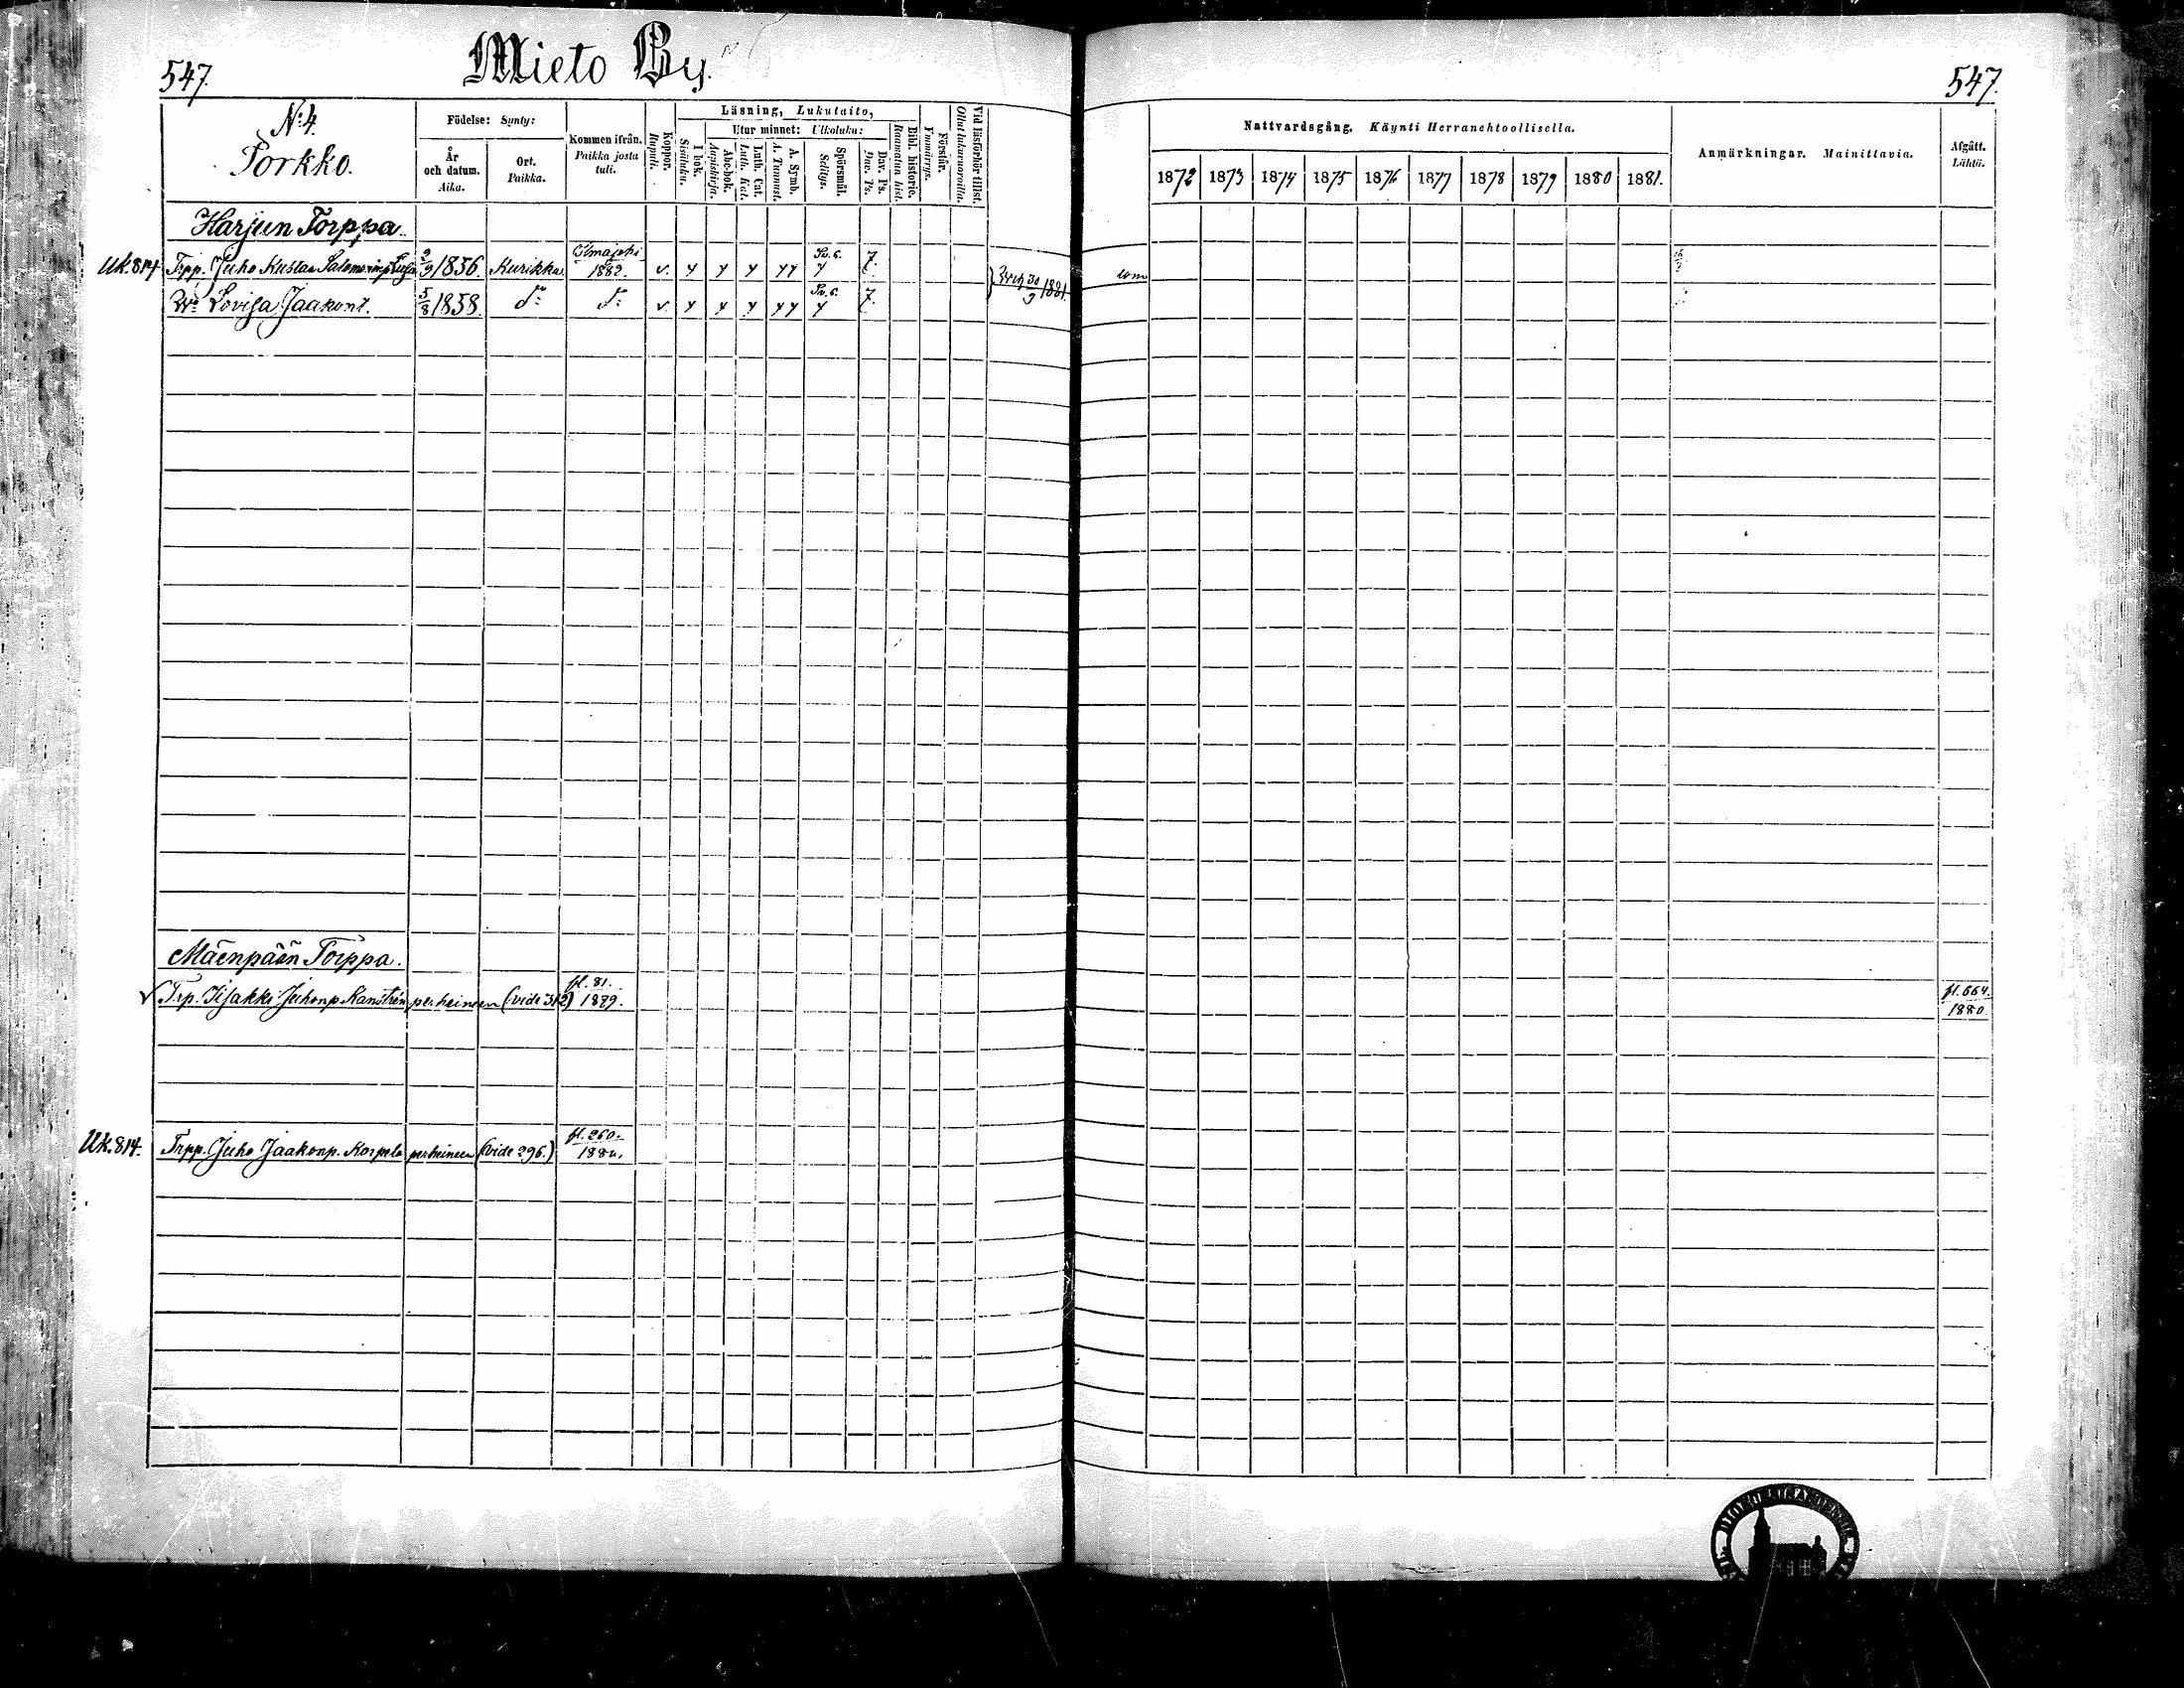 547.
Mieto By.
547.
N:o 4.
Torkko.
Födelse: Synty:
År och datum. Aika.
Ort. Paikka.
Kommen ifrån. Paikka josta tuli.
Koppor. Rupuli.
Läsning, Lukutaito,
I bok. Sisäluku.
Utur minnet: Ulkoluku:
Abc-bok. Aapiskirja.
Luth. Cat. Luth. Kat.
A. Symb. A. Tunnust.
Spörsmål. Selitys.
Dav. Ps. Dav. Ps.
Bibl. historie. Raamatun hist.
Förstår. Ymmärrys.
Vid läsförhör tillst. Ollut lukuvuoroilla.
Nattvardsgång. Käynti Herranehtoollisella.
1872 1873 1874 1875 1876 1877 1878 1879 1880 1881.
Anmärkningar. Mainittavia.
Afgått. Lähtö.
Harjun Torppa.
Uk. 814 Trpp. Juho Kustaa Salomoninp. 2/9 1856 Kurikka Ilmajoki 1882. v. y y y yy y 7. 30/9 1881
W:o Lovisa Jaakont. 5/8 1858. d:o d:o v. y y y yy y 7.
Mäenpään Torppa.
v Trp. Iisakki Juhonp. Kanstrén perheineen (vide 312) fl. 81. 1879. fl. 664. 1880.
Uk. 814. Trpp. Juho Jaakonp. Korpela perheineen (vide 296.) fl. 260.